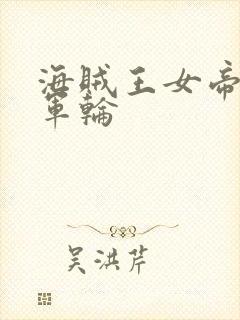 海賊王女帝
軍輪
吴洪芹